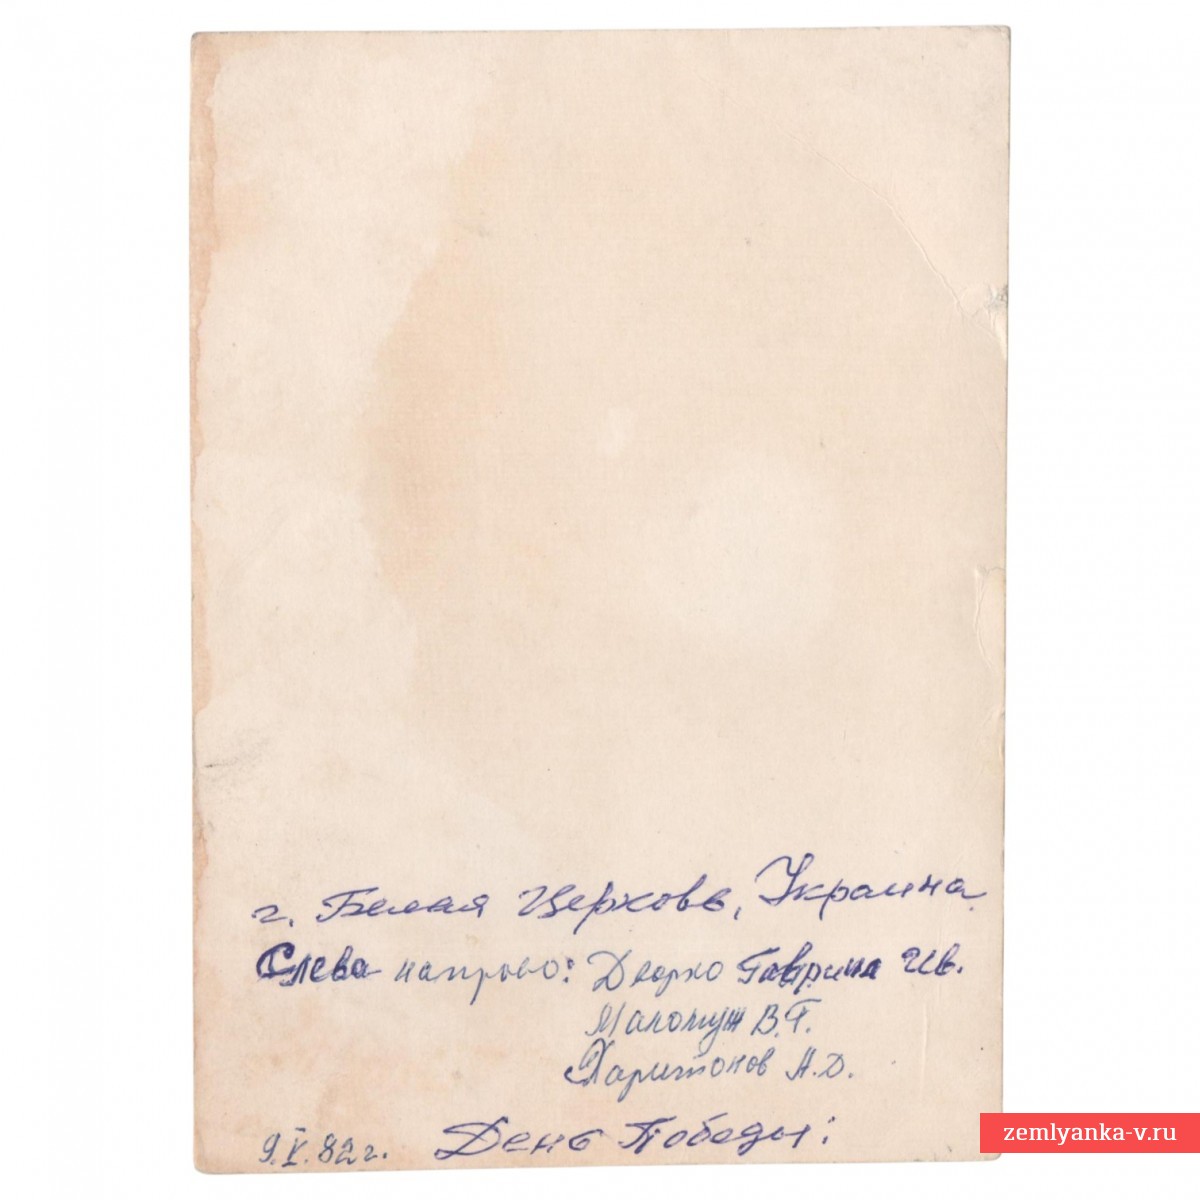 г. Белая Церковь, Украина
Слева направо: Дворко Гаврила Ив.
Маломуж В.Г.
Харитонов А.Д.
9.V.82г. День Победы:
zemlyanka-v.ru